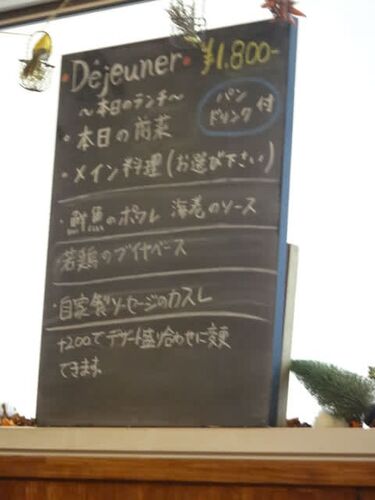 ・Déjeuner・ ¥1.800-
～本日のランチ～
パン
ドリンク付
・本日の前菜
・メイン料理(お選び下さい)
・鮮魚のポワレ 海老のソース
・若鶏のブイヤベース
・自家製ソーセージのカスレ
+200でデザート盛り合わせに変更
できます